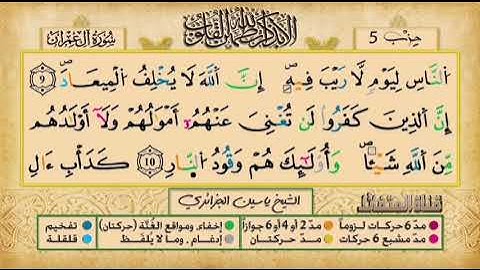 حزب 5
أَلَا بِذِكْرِ اللَّهِ تَطْمَئِنُّ الْقُلُوبُ
سُورَةُ آلِ عِمْرَانَ
اَ۬لنَّاسِ لِيَوْمٖ لَّا رَيْبَ فِيهِۖ إِنَّ اَ۬للَّهَ لَا يُخْلِفُ اُ۬لْمِيعَادَۖ 9
إِنَّ اَ۬لذِينَ كَفَرُواْ لَن تُغْنِيَ عَنْهُمُۥٓ أَمْوَٰلُهُمْ وَلَآ أَوْلَٰدُهُم
مِّنَ اَ۬للَّهِ شَيْـٔاٗۖ وَأُوْلَٰٓئِكَ هُمْ وَقُودُ اُ۬لنّ۪ارِ 10 كَدَأْبِ ءَالِ
الشيخ ياسين الجزائري
مدّ 6 حركات لزوماً مدّ 2 أو 4 أو 6 جوازاً إخفاء، ومواقع الغُنَّة (حركتان) تفخيم
مدّ مشبع 6 حركات مدّ حركتان إدغام، وما لا يُلفَظ قلقلة